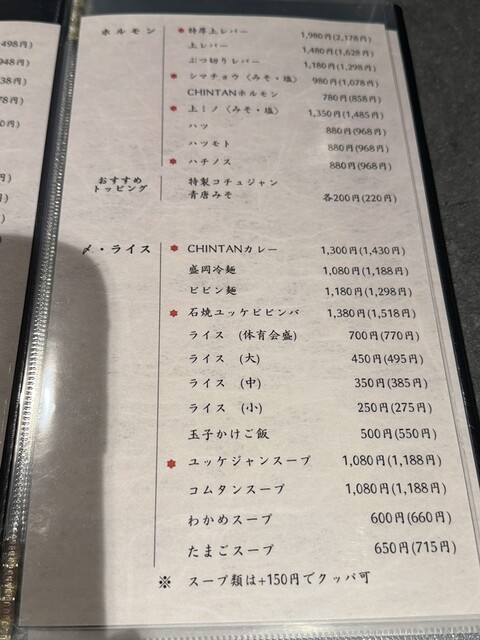 498円)
948円)
38円)
78円)
0円)
円)
円)
円)
円)
ホルモン
特厚上レバー 1,980円(2,178円)
上レバー 1,480円(1,628円)
ぶつ切りレバー 1,180円(1,298円)
シマチョウ〈みそ・塩〉 980円(1,078円)
CHINTANホルモン 780円(858円)
上ミノ〈みそ・塩〉 1,350円(1,485円)
ハツ 880円(968円)
ハツモト 880円(968円)
ハチノス 880円(968円)
おすすめ
トッピング
特製コチュジャン
青唐みそ 各200円(220円)
〆・ライス
CHINTANカレー 1,300円(1,430円)
盛岡冷麺 1,080円(1,188円)
ビビン麺 1,180円(1,298円)
石焼ユッケビビンバ 1,380円(1,518円)
ライス (体育会盛) 700円(770円)
ライス (大) 450円(495円)
ライス (中) 350円(385円)
ライス (小) 250円(275円)
玉子かけご飯 500円(550円)
ユッケジャンスープ 1,080円(1,188円)
コムタンスープ 1,080円(1,188円)
わかめスープ 600円(660円)
たまごスープ 650円(715円)
※ スープ類は+150円でクッパ可